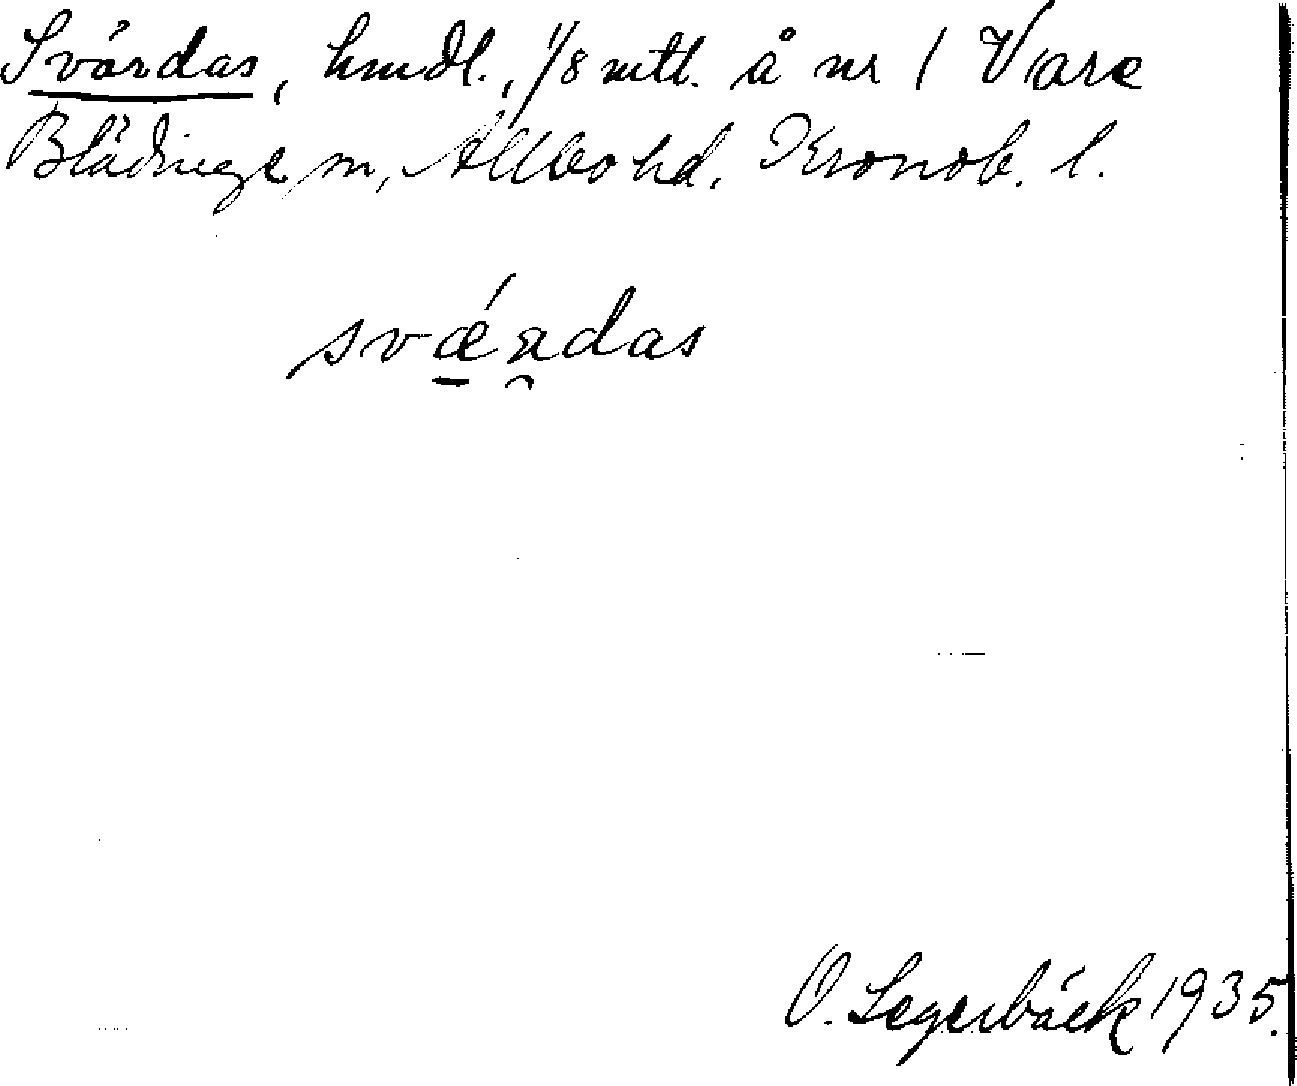 Svärdas, hmdl., 1/8 mtl. å nr 1 Vare
Blädinge sn, Allbo hd. Kronob. l.
svǽʀdas
O. Legerbäck 1935.